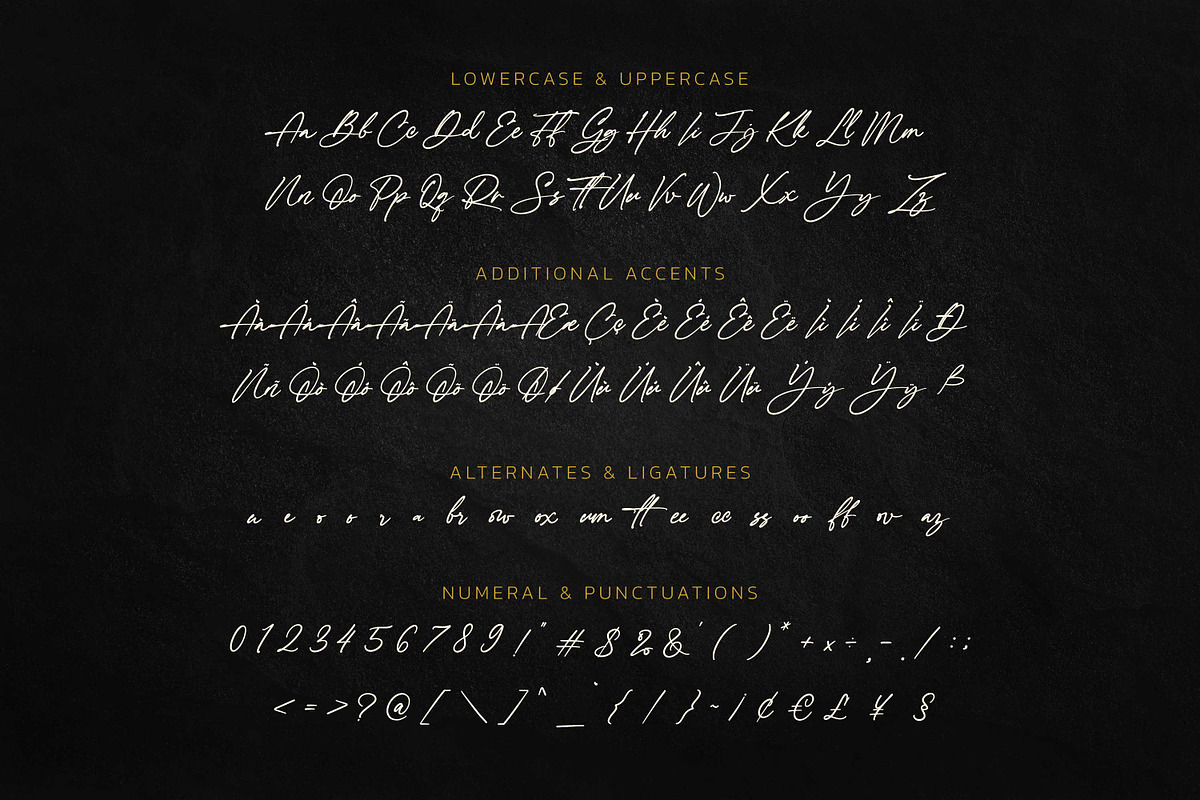 LOWERCASE & UPPERCASE
Aa Bb Cc Dd Ee Ff Gg Hh Ii Jj Kk Ll Mm
Nn Oo Pp Qq Rr Ss Tt Uu Vv Ww Xx Yy Zz
ADDITIONAL ACCENTS
Àà Áá Ââ Ãã Ää Åå Ææ Çç Èè Éé Êê Ëë Ìì Íí Îî Ïï Ð
Ññ Òò Óó Ôô Õõ Öö Øø Ùù Úú Ûû Üü Ýý Ÿÿ ß
ALTERNATES & LIGATURES
a e o o r a br ow ox um tt ee cc ss oo ff ov az
NUMERAL & PUNCTUATIONS
0 1 2 3 4 5 6 7 8 9 ! " # $ % & ' ( ) * + × ÷ , - . / : ;
< = > ? @ [ \ ] ^ _ ` { | } ~ ¡ ¢ € £ ¥ §